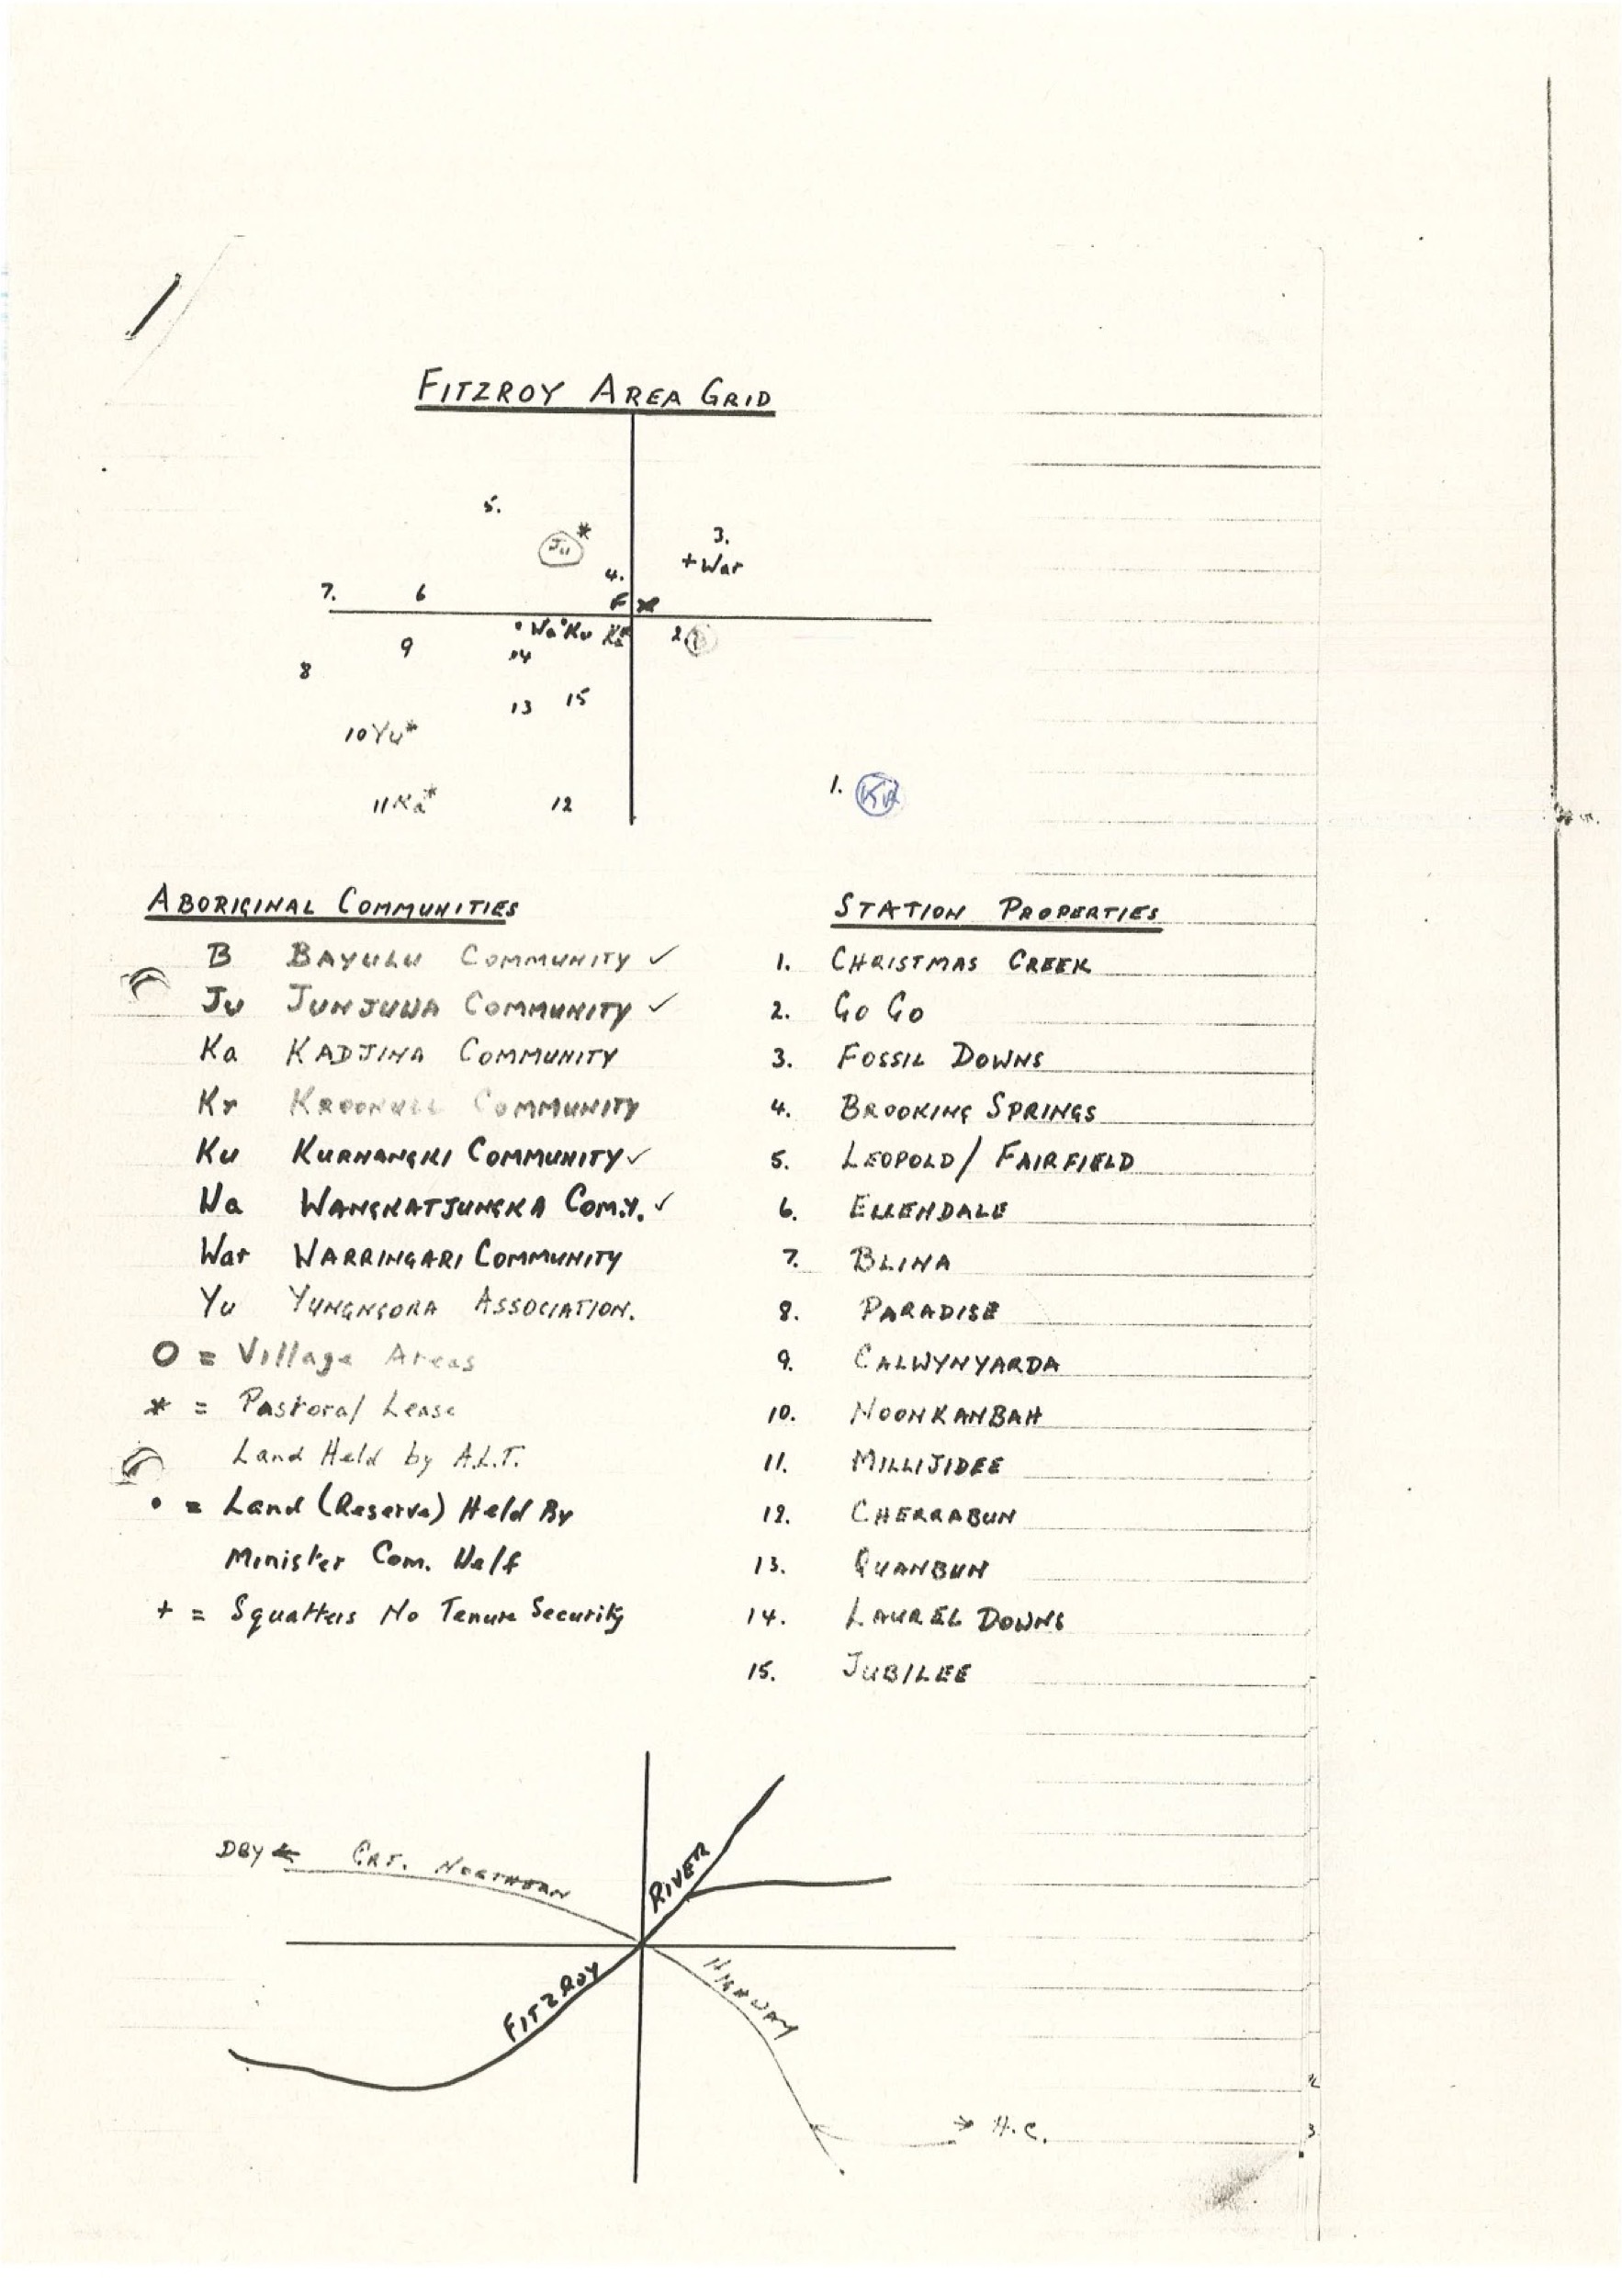 FITZROY AREA GRID
5.
Ju *
3.
+ War
4.
7. 6
F
• Wa • Ku 2.
9 14
8
13 15
10 Yu*
11 Ka*
12
1.
ABORIGINAL COMMUNITIES
B BAYULU COMMUNITY ✓
Ju JUNJUWA COMMUNITY ✓
Ka KADJINA COMMUNITY
Kr COMMUNITY
Ku KURNANGKI COMMUNITY ✓
Wa WANGKATJUNGKA COM.Y. ✓
War WARRINGARI COMMUNITY
Yu YUNGNGORA ASSOCIATION.
O = Village Areas
* = Pastoral Lease
Land Held by A.L.T.
• = Land (Reserve) Held By
Minister Com. Welf
+ = Squatters No Tenure Security
STATION PROPERTIES
1. CHRISTMAS CREEK
2. GO GO
3. FOSSIL DOWNS
4. BROOKING SPRINGS
5. LEOPOLD / FAIRFIELD
6. ELLENDALE
7. BLINA
8. PARADISE
9. CALWYNYARDA
10. NOONKANBAH
11. MILLIJIDEE
12. CHERRABUN
13. QUANBUN
14. LAUREL DOWNS
15. JUBILEE
DBY ← GRT. NORTHERN
RIVER
FITZROY
HIGHWAY
→ H.C.
2
3